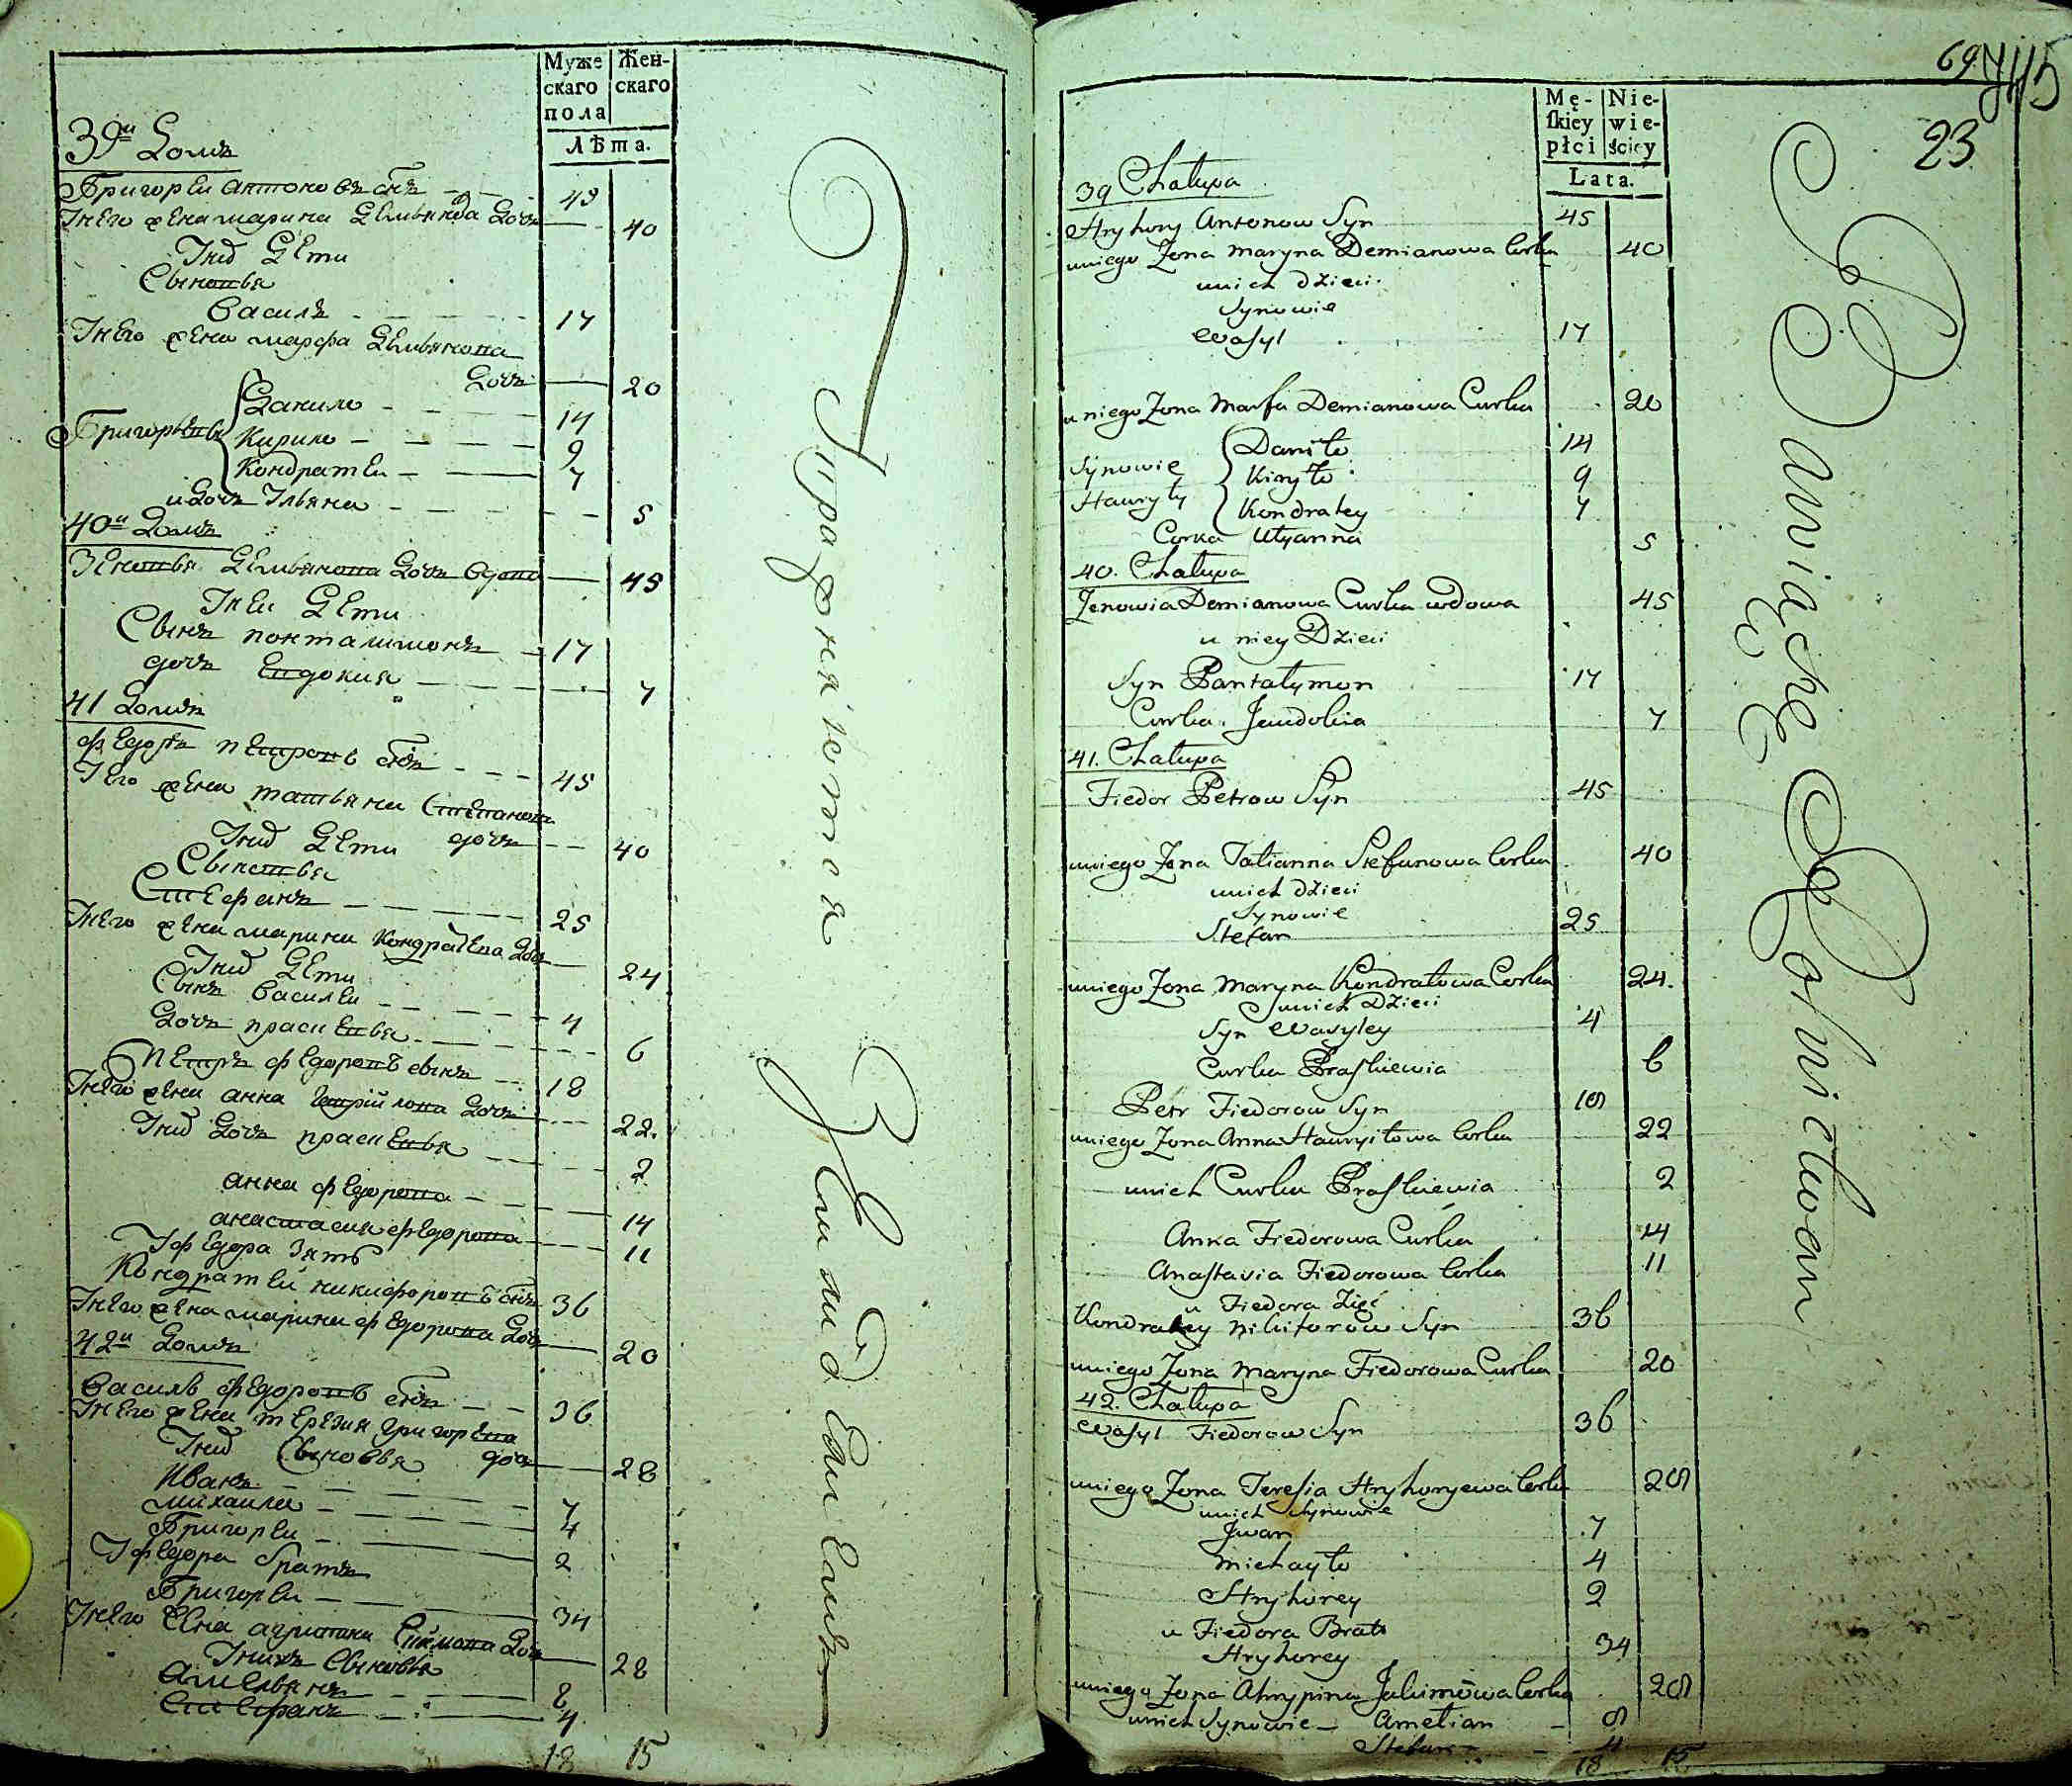 Муже
скаго
пола
Жен-
скаго
Лѣта.
39й домъ
Григорей антоновъ снъ 45
Унего жена марина демьянова дочь 40
Унихъ дети
Сыновья
василь 17
Унего жена марфа демьянова
дочь 20
Григорьевы
данило 14
Кирило 9
Кондратеи 7
и дочь Ульяна 5
40й домъ
Зеновья демьянова дочь вдова 45
Унеи дети
Сынъ понталимонъ 17
дочь Евдокия 7
41 домъ
федоръ петровъ снъ 45
Унего жена татьяна Степанова
дочь 40
Унихъ дети
Сыновья
Стефанъ 25
Унего жена марина Кондратева дочь 24
Унихъ дети
Сынъ василеи 4
дочь прасковья 6
петръ федоровъ сынъ 18
Унего жена анна гаврилова дочь 22.
Унихъ дочь прасковья 2
анна федорова 14
анастасия федорова 11
У федора зять
Кондратей никифоровъ снъ 36
Унего жена марина федорова дочь 20
42й домъ
василь федоровъ снъ 36
Унего жена терезия григорева
дочь 28
Унихъ Сыновья
иванъ 7
михаила 4
Григореи 2
У федора братъ
Григореи 34
Унего жена агрипина дочь 28
Унихъ Сыновья
амельянъ 8
Стефанъ 4
18 15
69
23
Mę-
ſkiey
płci
Nie-
wie-
ściey
Lata.
39 Chałupa
Hryhory Antonow Syn 45
uniego Zona Maryna Demianowa Corka 40
unich dzieci
Synowie
Wasyl 17
u niego Zona Marfa Demianowa Curka 20
Synowie
Hawryły
Daniło 14
Kiryło 9
Kondratey 7
Corka Ulyanna 5
40. Chałupa
Zenowia Demianowa Curka wdowa 45
u niey Dzieci
Syn Pantalymon 17
Curka Jewdokia 7
41. Chałupa
Fiedor Petrow Syn 45
uniego Zona Tatianna Stefanowa Corka 40
unich dzieci
Synowie
Stefan 25
uniego Zona Maryna Kondratowa Corka 24.
unich Dzieci
Syn Wasyley 4
Curka Praskiewia 6
Petr Fiedorow Syn 18
uniego Zona Anna Hawryiłowa Corka 22
unich Curka Praskiewia 2
Anna Fiedorowa Curka 14
Anastasia Fiedorowa Corka 11
u Fiedora Zięć
Kondratey Nikiforow Syn 36
uniego Zona Maryna Fiedorowa Curka 20
42. Chałupa
Wasyl Fiedorow Syn 36
uniego Zona Teresia Hryhoryewa Corka 28
unich Synowie
Jwan 7
Michayło 4
Hryhorey 2
u Fiedora Brat
Hryhorey 34
uniego Zona Ahrypina Jakimowa Corka 28
unich Synowie Amelian 8
Stefan 4
18 15